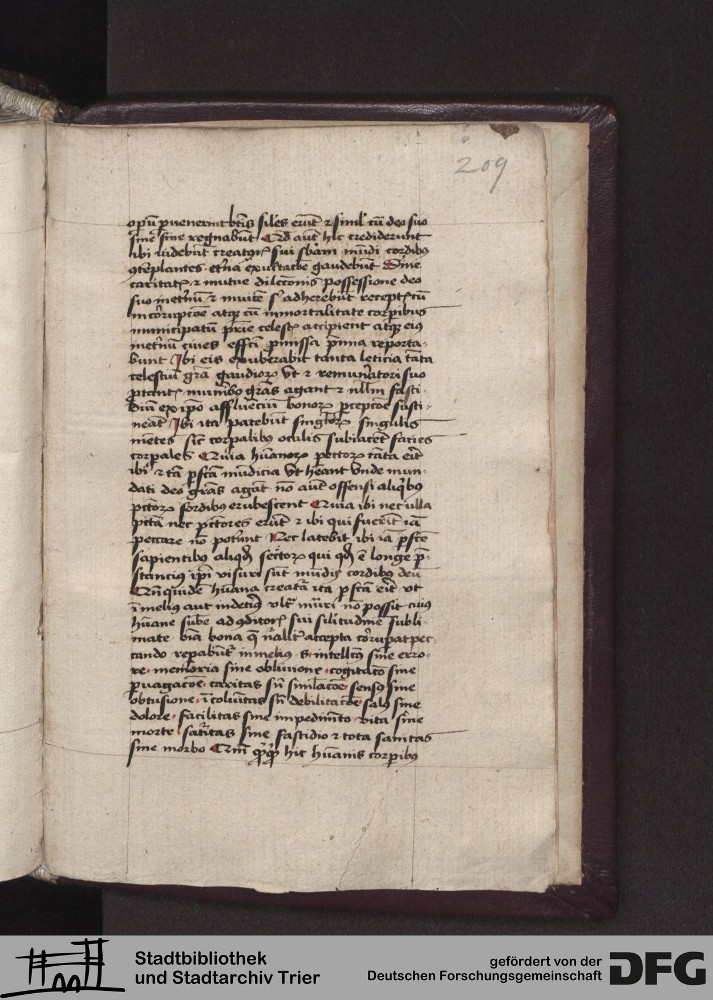 209
opū pvenerint btīs siles erūt ⁊ simul cū deo suo
sine fine regnabūt Qd autē hic crediderunt
ibi videbūt creatorꝭ sui sbām mūdi cordibꝰ
ꝯtēplantes etna exultacōe gaudebūt Diūe
caritatꝭ ⁊ mutue dilcconis possessione deo
suo ineternū ⁊ inuicē sꝰ adherebūt receptꝭ cū
incorrupcōe atqꝫ cū inmortalitate corpibus
municipatū prie celestꝭ accipient atqꝫ eiꝰ
ineternū ciues effcī pmissa pmia reporta-
bunt Ibi eis exuberabit tanta leticia tāta
celestiū grā gaudioꝝ vt ⁊ remunatori suo
ꝓ tantꝭ munibꝰ grās agant ⁊ nllm fasti-
diū ex ipo affluenciū bonoꝝ pcepcōe susti-
neāt Ibi ita patebūt singloꝝ singulis
mētes sic corpalibꝰ oculis subiacēt facies
corpales Quia hūanoꝝ pectoꝝ tanta erit
ibi ⁊ tā pfcā mūdicia vt heant vnde mun-
dati deo grās agāt nō autē offensi aliqbꝰ
pctoꝝ sordibꝰ erubescent Quia ibi nec ulla
pctā nec pctores erūt ⁊ ibi qui fuerīt iā
peccare nō poterunt Nec latebit ibi iā pfcē
sapientibꝰ aliqd secretoꝝ qui qd ē longe p-
stancius ipm visuri sūt mūdis cordibꝰ deū
Qn̄quidē hūana creatā ita pfcā erit vt
ī meliꝰ aut indeteriꝰ vltꝰ mutari nō possit cuiꝰ
hūane sube ad ꝯditorꝭ sui silitudinē subli-
mate bīa bona q̄ nālitꝰ accepta corrupat pec-
cando repabūt in meliꝰ .s. intellcūs sine erro-
re. memoria sine obliuione. cogitacio sine
puagacōe. caritas sn̄ simlacōe. sensꝰ sine
obtusione. īcolumitas sn̄ debilitacōe. salꝰ sine
dolore. facilitas sine impedimto. vita sine
morte. satietas sine fastidio ⁊ tota sanitas
sine morbo Qm̄ qꝫqꝫ hic hūanis corpibꝰ
Stadtbibliothek
und Stadtarchiv Trier
gefördert von der
Deutschen Forschungsgemeinschaft
DFG